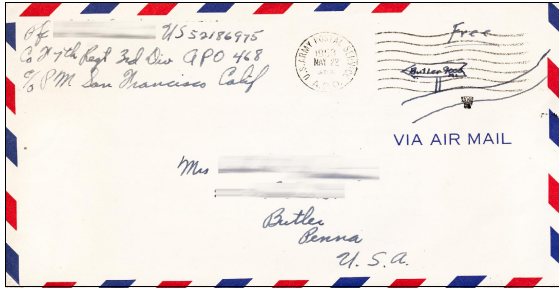 Pfc US52186975
Co H 7th Regt 3rd Div APO 468
c/o P M San Francisco Calif
U.S. ARMY POSTAL SERVICE
MAY 22
A.P.O.
Free
Butler
VIA AIR MAIL
Mrs
Butler
Penna
U. S. A.